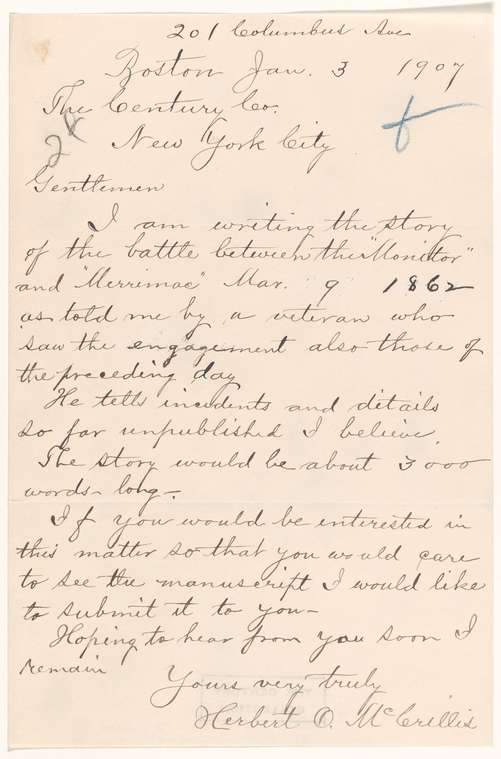 201 Columbus Ave
Boston Jan. 3 1907
The Century Co.
New York City
Gentlemen
I am writing the story
of the battle between the "Monitor"
and "Merrimac" Mar. 9 1862
as told me by a veteran who
saw the engagement also those of
the preceding day
He tells incidents and details
so far unpublished I believe.
The story would be about 3000
words- long-
If you would be interested in
this matter so that you would care
to see the manuscript I would like
to submit it to you-
Hoping to hear from you soon I
remain
Yours very truly
Herbert O. McCrillis